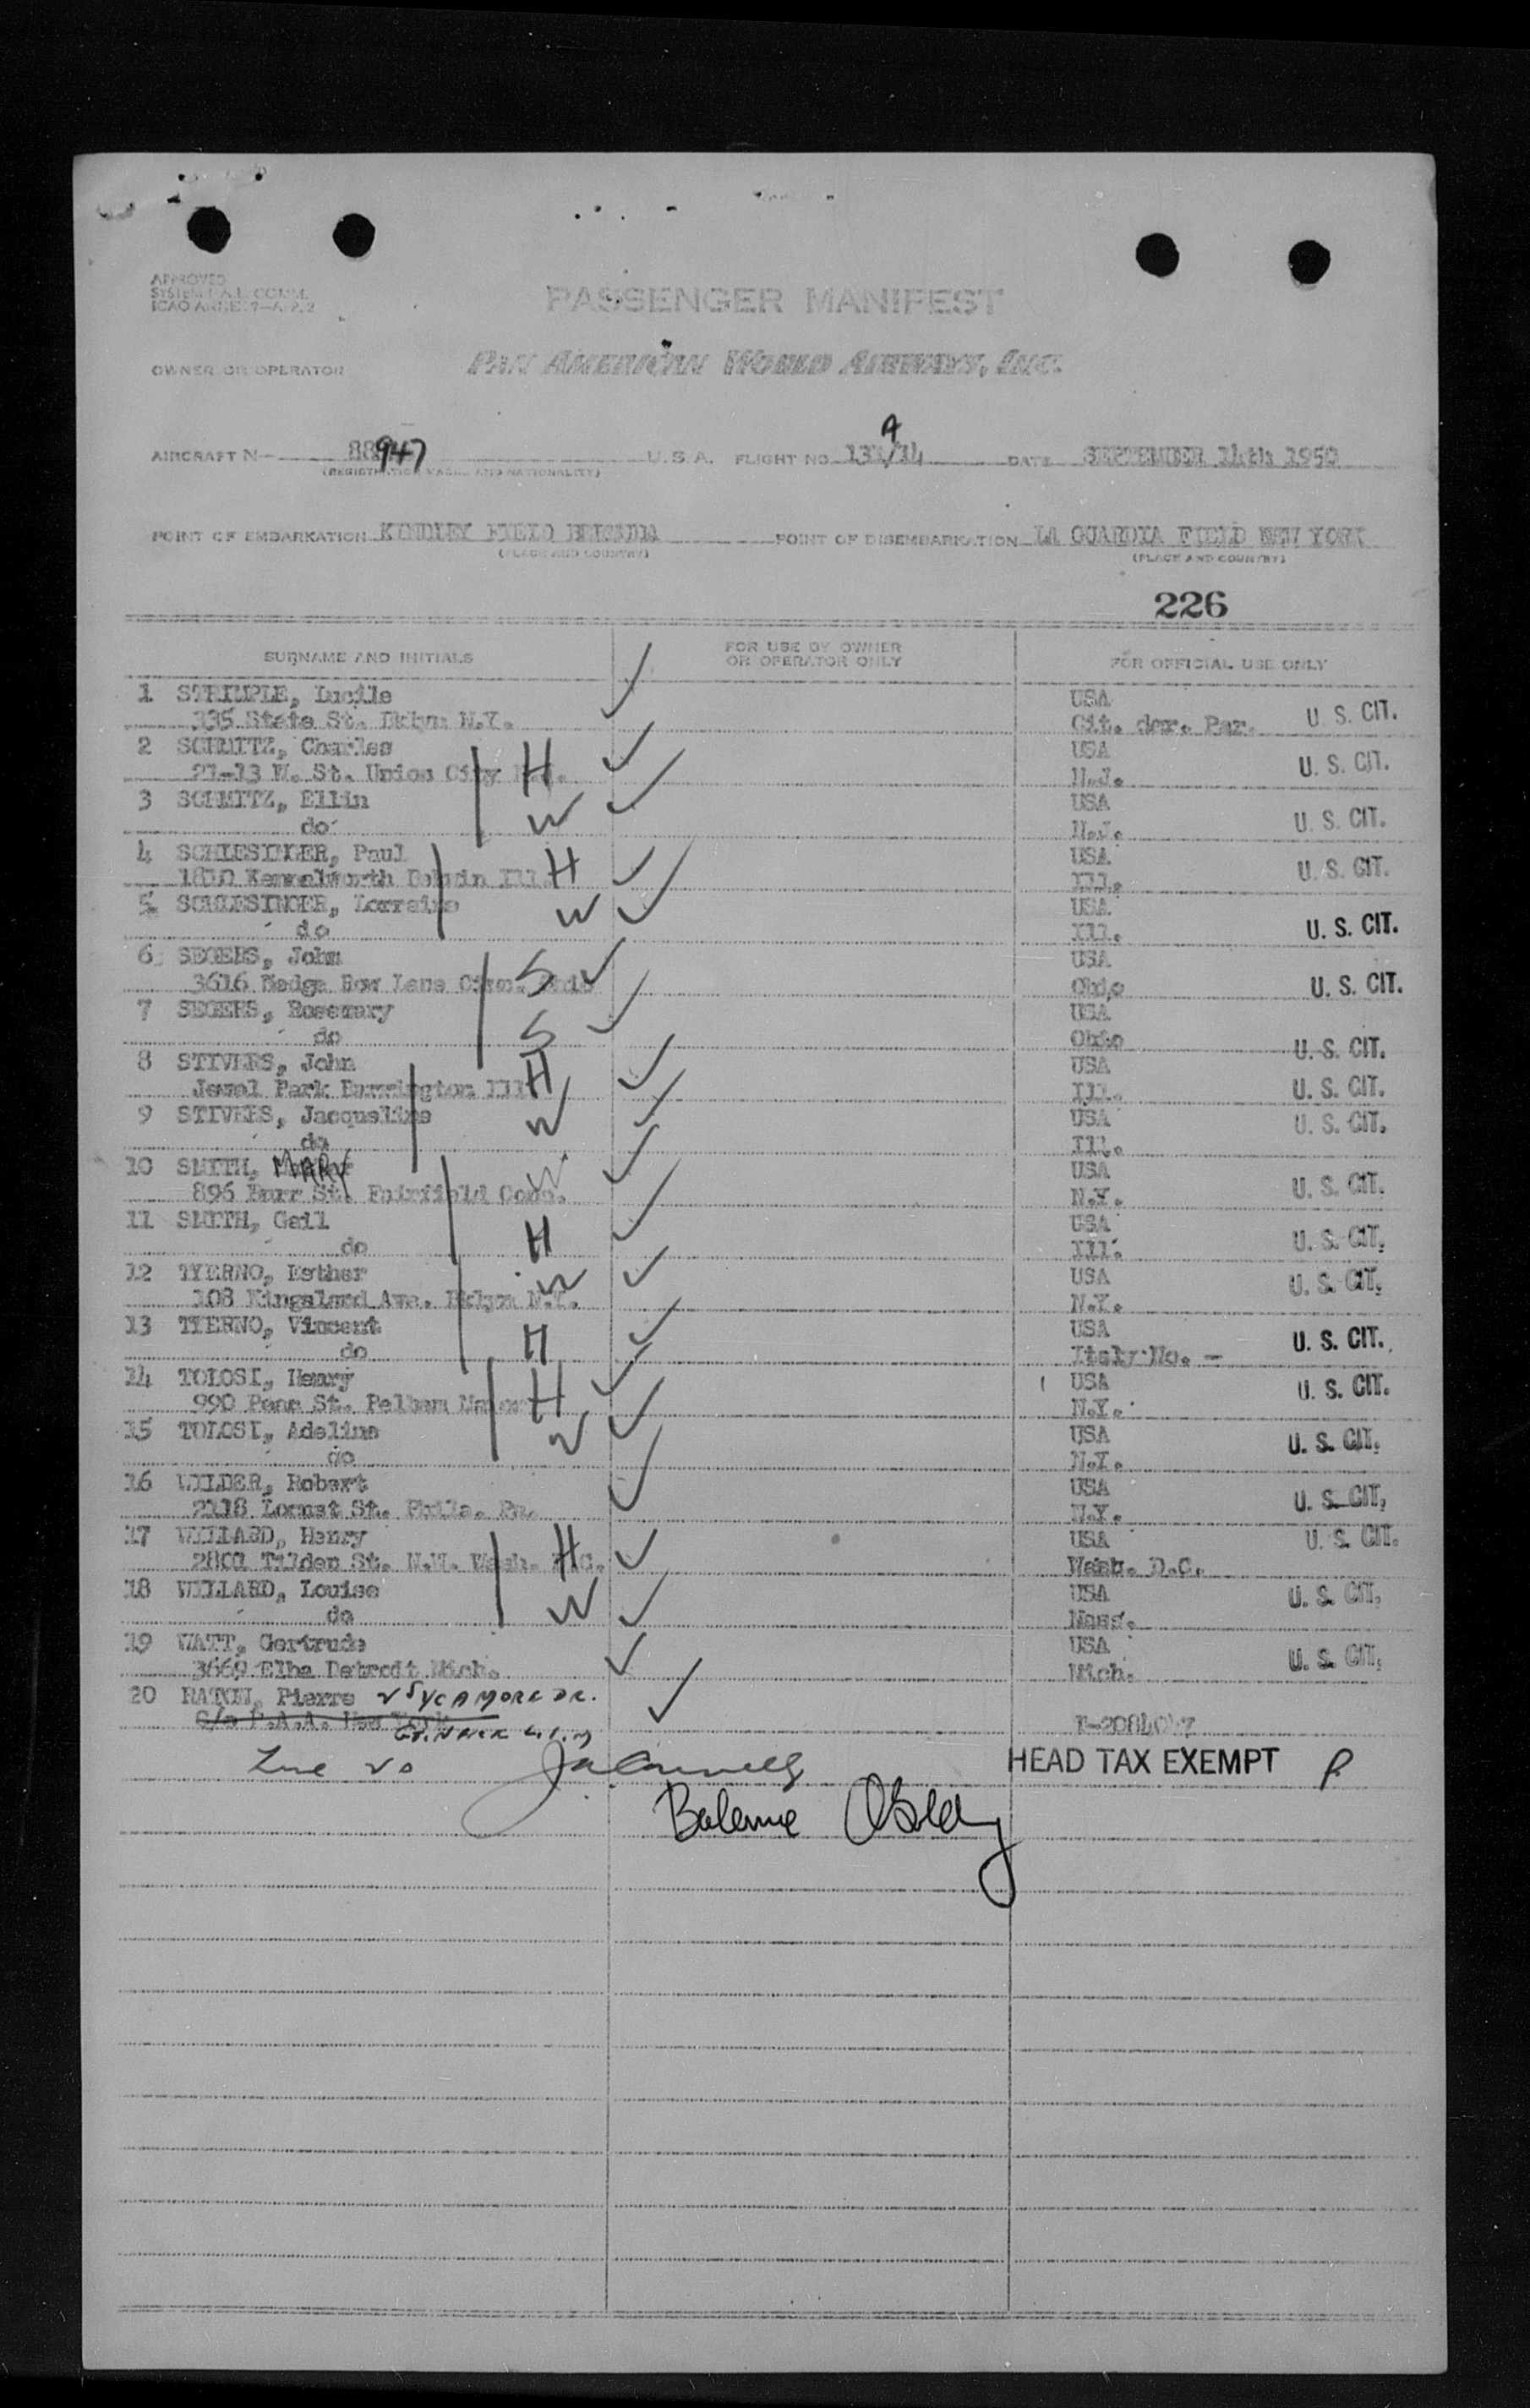 APPROVED
PASSENGER MANIFEST
OWNER OR OPERATOR PAN AMERICAN WORLD AIRWAYS, INC.
AIRCRAFT N— 88947 U.S.A. FLIGHT NO. A /14 DATE SEPTEMBER 14th 1950
POINT OF EMBARKATION KINDLEY FIELD BERMUDA POINT OF DISEMBARKATION LA GUARDIA FIELD NEW YORK
(PLACE AND COUNTRY) (PLACE AND COUNTRY)
226
SURNAME AND INITIALS FOR USE BY OWNER OR OPERATOR ONLY FOR OFFICIAL USE ONLY
1 STRIMPLE, Lucile USA
335 State St. Bklyn N.Y. Cit. der. Par. U. S. CIT.
2 SCHMITZ, Charles USA
21-13 St. Union City H N.J. U. S. CIT.
3 SCHMITZ, Ellin USA
do W N.J. U. S. CIT.
4 SCHLESINGER, Paul USA
1810 H Ill. U. S. CIT.
5 SCHLESINGER, Lorraine USA
do W Ill. U. S. CIT.
6 SEGERS, John USA
3616 Hedge Row Lane S Ohio U. S. CIT.
7 SEGERS, Rosemary USA
do S Ohio U. S. CIT.
8 STIVERS, John USA
Jewel Park Barrington Ill H Ill. U. S. CIT.
9 STIVERS, Jacqueline USA
do W Ill. U. S. CIT.
10 SMITH, MARY USA
896 Burr St. Fairfield Conn. W N.Y. U. S. CIT.
11 SMITH, Gail USA
do H Ill. U. S. CIT.
12 TYERNO, Esther USA
108 Kingsland Ave. Bklyn N.Y. W N.Y. U. S. CIT.
13 TYERNO, Vincent USA
do H Italy No. - U. S. CIT.
14 TOLOSI, Henry USA
990 St. Pelham Manor H N.Y. U. S. CIT.
15 TOLOSI, Adeline USA
do W N.Y. U. S. CIT.
16 WILDER, Robert USA
2118 Locust St. Phila. Pa. N.Y. U. S. CIT.
17 WILLARD, Henry USA U. S. CIT.
Tilden St. N.W. Wash. H Wash. D.C.
18 WILLARD, Louise USA U. S. CIT.
do W Mass.
19 WATT, Gertrude USA
3669 Elba Detroit Mich. Mich. U. S. CIT.
20 Pierre SYCAMORE DR.
c/o P.A.A. New York GT. NECK L.I.
HEAD TAX EXEMPT